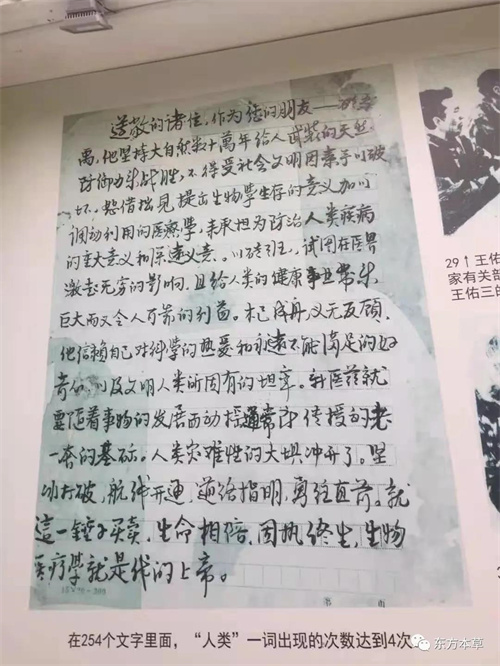 尊敬的诸位，作为您的朋友——
禹，他坚持大自然数十萬年给人武装的天然
防御力来战胜，不得受社会文明因素予以破
坏。想借拙见提出生物学生存的意义加以
调动利用的医疗学，来承担为防治人类疾病
的重大意义和深远义意。以砖引，试图在医界
激起无穷的影响，且给人类的健康事业带来
巨大而又令人可靠的利益。木已成舟，义无反顾，
他信赖自己对科学的热爱和永远不能满足的好
奇心，以及文明人类所固有的坦率。新医药就
要随着事物的发展而动摇通常即传授的老
一套的基础。人类灾难性的大坝冲开了。坚
冰打破，航线开通，道给指明，离经直前。就
這一锤子买卖，生命相陪，固执终生，生物
医疗學就是我的上帝。
15×20=300
第 页
29↑王佑
家有关部
王佑三的
在254个文字里面，“人类”一词出现的次数达到4次
东方本草